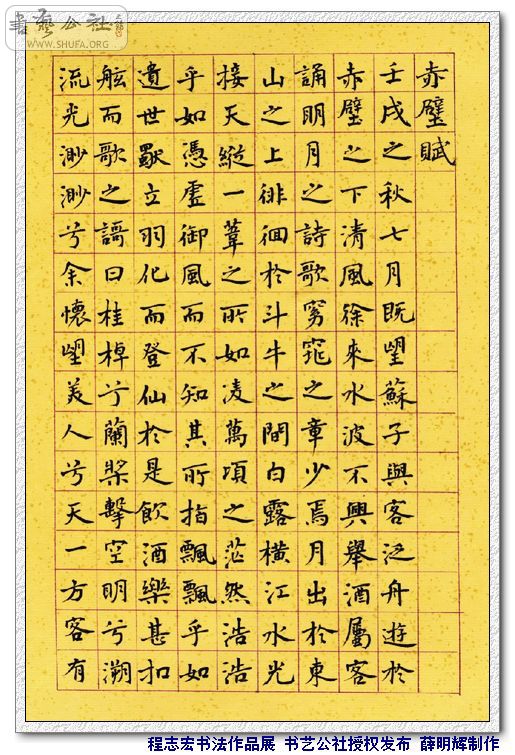 赤壁賦
壬戌之秋七月既望蘇子與客泛舟遊於
赤壁之下清風徐來水波不興舉酒屬客
誦明月之詩歌窈窕之章少焉月出於東
山之上徘徊於斗牛之間白露橫江水光
接天縱一葦之所如凌萬頃之茫然浩浩
乎如憑虛御風而不知其所指飄飄乎如
遺世獨立羽化而登仙於是飲酒樂甚扣
舷而歌之謌曰桂棹兮蘭槳擊空明兮溯
流光渺渺兮余懷望美人兮天一方客有
書藝公社
WWW.SHUFA.ORG
程志宏书法作品展 书艺公社授权发布 薛明辉制作